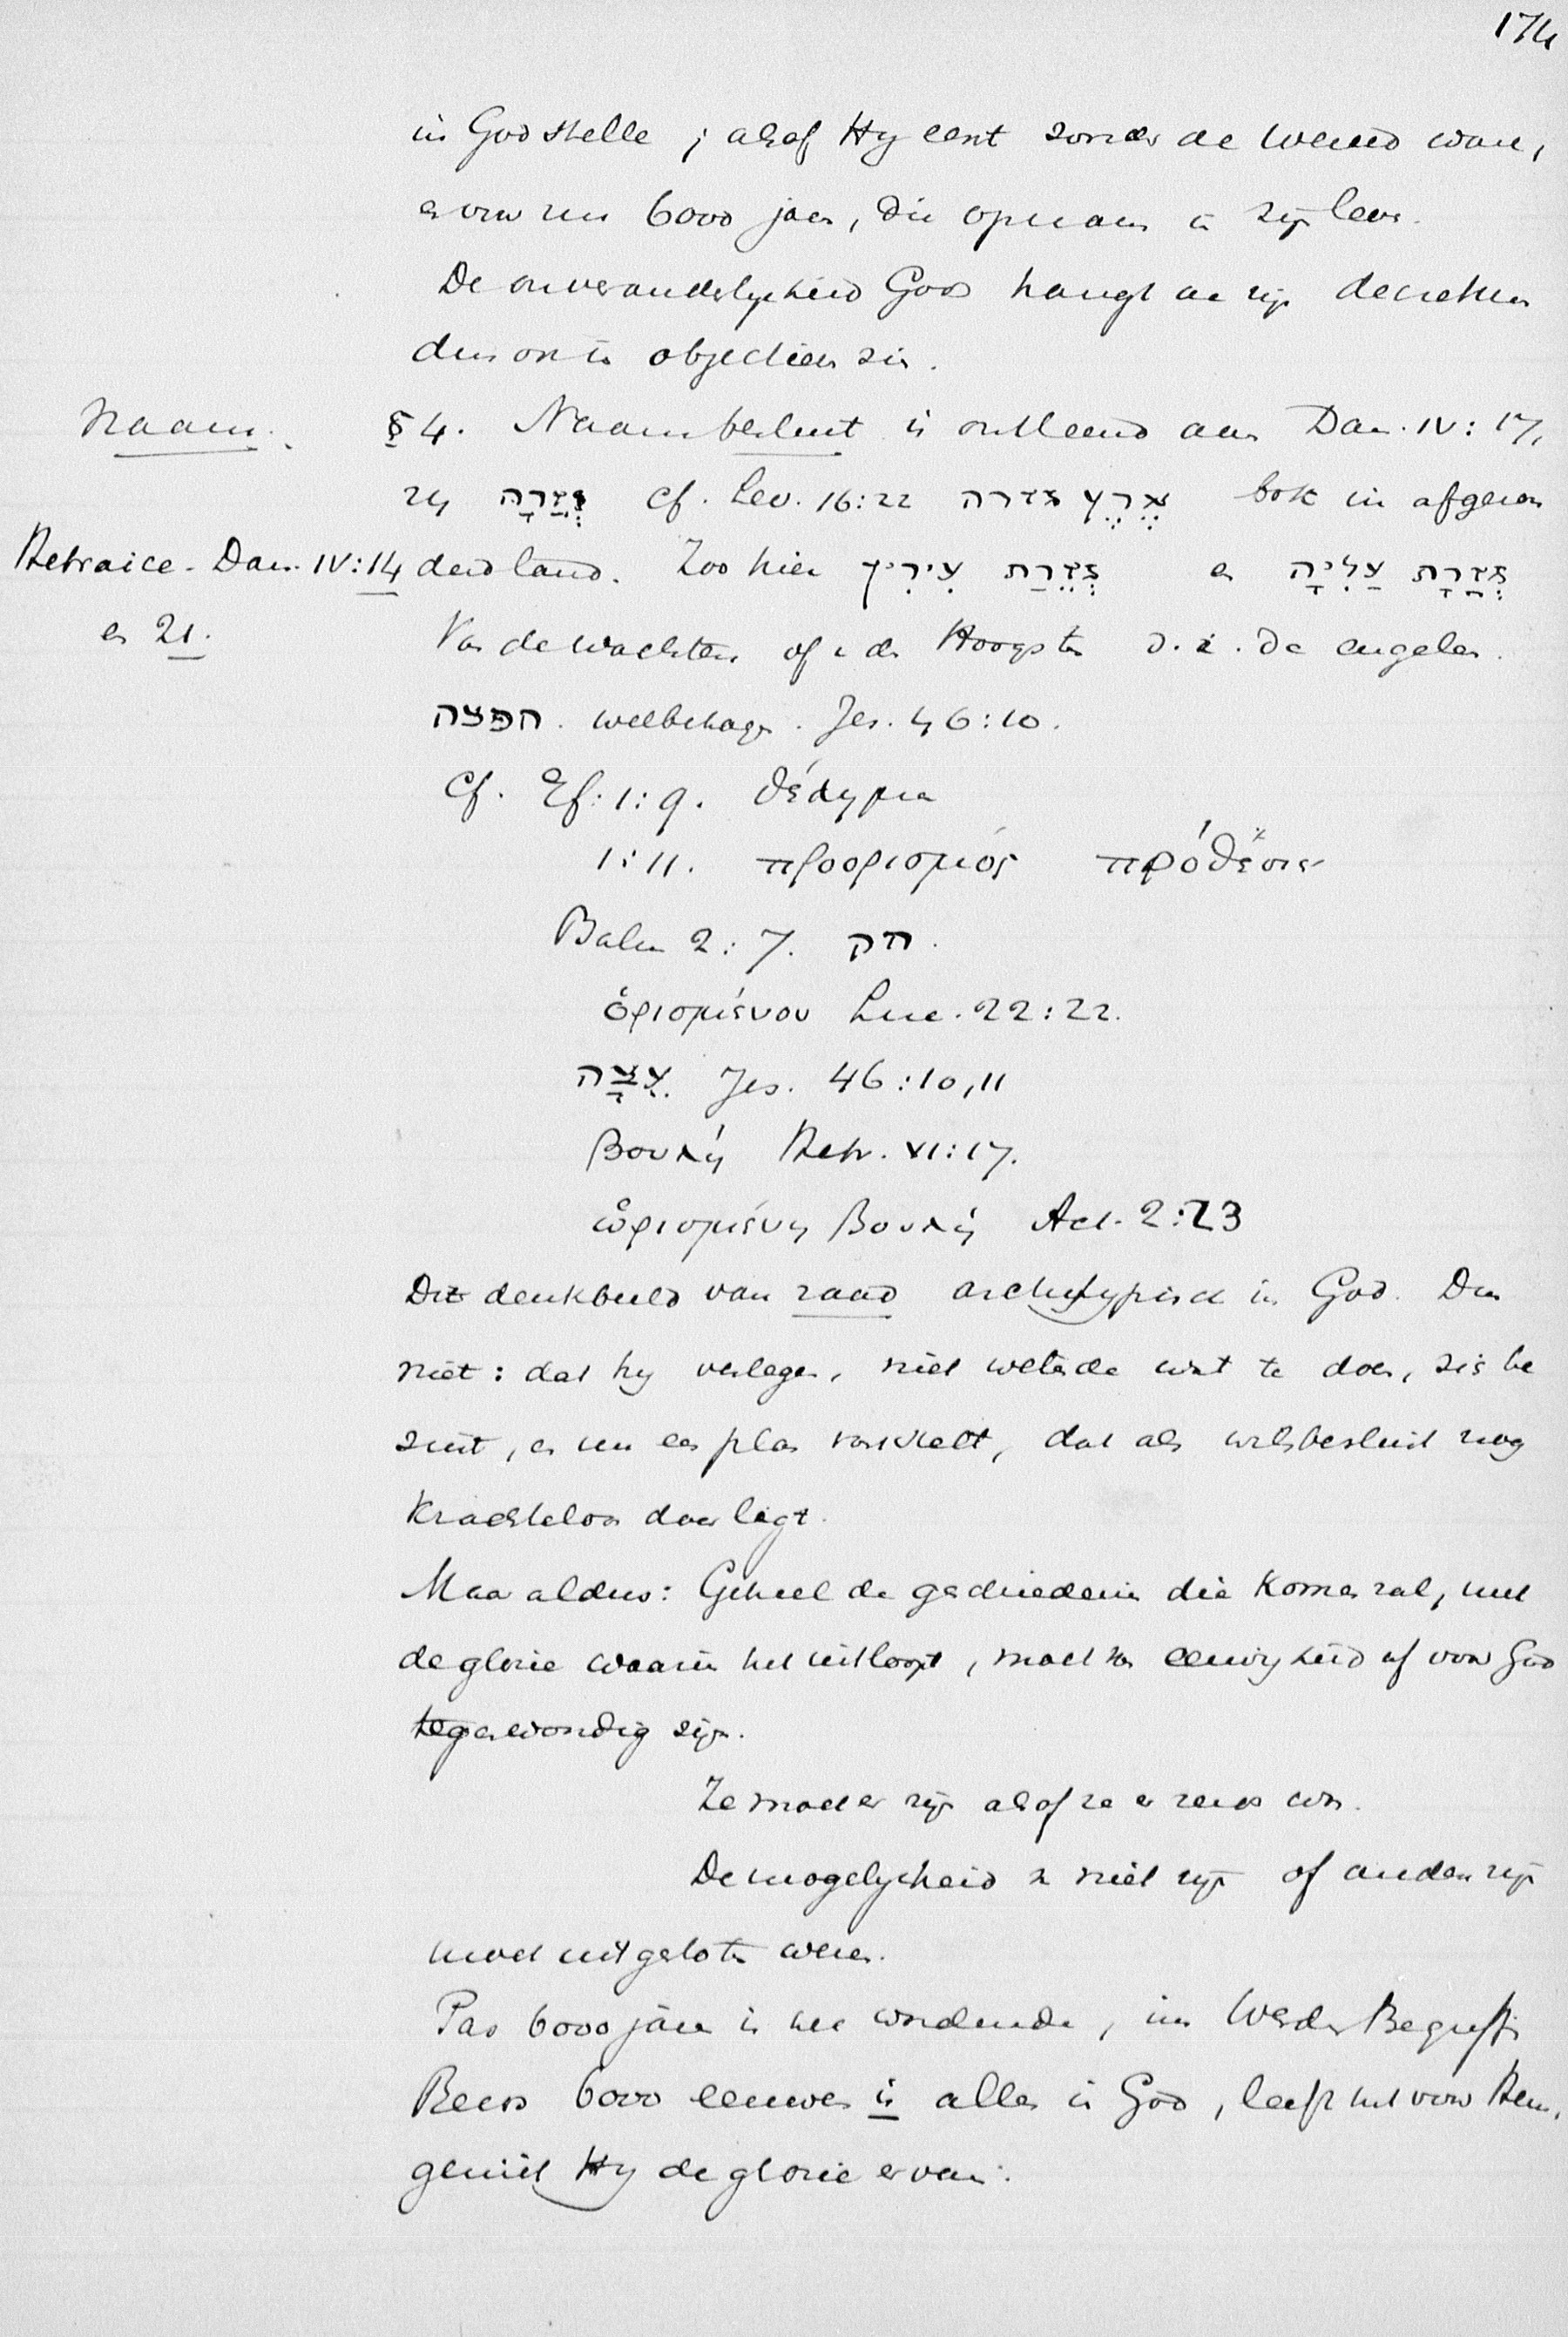 174
in God stelle; alsof Hy eerst zonder de wereld ware,
en voor nu 6000 jaar, die opnam in zyn leven.
De onveranderlykheid Gods hangt aan zyn decreten
dus ook in objectieven zin.
Naam. § 4. Naam besluit is ontleend aan Dan. IV: 17,
24 גְּזֵרָה cf. Lev. 16:22 אֶרֶץ גזרה bok in afgezon
Hebraice - Dan. IV:14 derd land. Zoo hier גְּזֵרַת עִירִין en גְּזֵרַת עִלָּיָה
en 21. Van de wachters of v. den Hoogsten d.i. de engelen.
חפצה. welbehagen. Jes. 46:10.
Cf. Ef: 1:9. θέλημα
1:11. προορισμός πρόθεσις
Psalm 2:7. חק.
ὡρισμένον Luc. 22:22.
עֵצָה Jes. 46:10,11
βουλή Hebr. VI:17.
ὡρισμένη βουλή Act. 2:23
Dit denkbeeld van raad archetypisch in God. Dus
niet: dat hy verlegen, niet wetende wat te doen, zich be
zint, en nu een plan vaststelt, dat als wilsbesluit nog
krachteloos daar ligt.
Maar aldus: Geheel de geschiedenis die komen zal, met
de glorie waarin het uitloopt, moet van eeuwigheid af voor God
tegenwoordig zyn.
Ze moet er zyn alsof ze er reeds was.
De mogelykheid van niet zyn of anders zyn
moet uitgesloten wezen.
Pas 6000 jaar is het wordende, im Werden Begriffen
Reeds 6000 eeuwen is alles in God, leeft het voor Hem,
geniet Hy de glorie ervan.